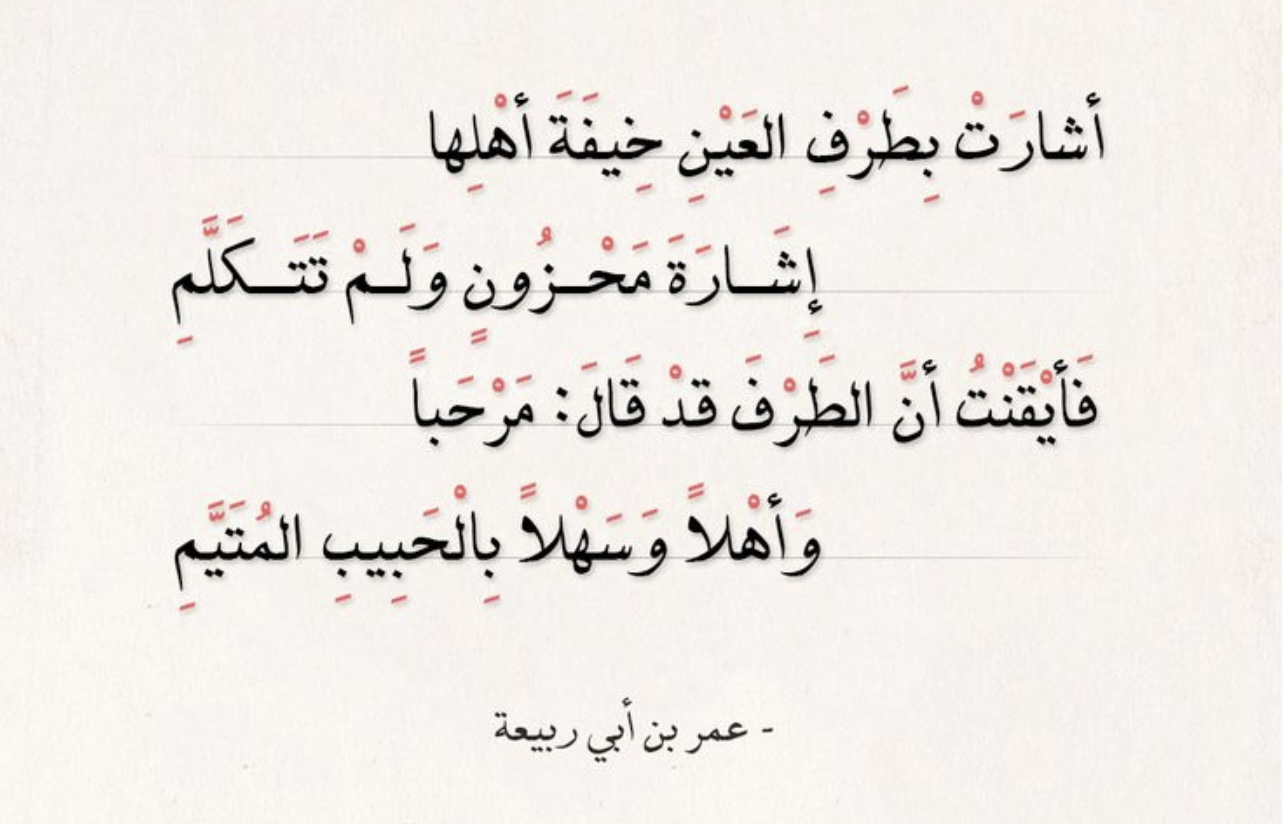 أشارَتْ بِطَرْفِ العَيْنِ خِيفَةَ أهْلِها
إِشَــارَةَ مَحْــزُونٍ وَلَــمْ تَتَــكَلَّمِ
فَأيْقَنْتُ أنَّ الطَرْفَ قدْ قَالَ: مَرْحَباً
وَأهْلاً وَسَهْلاً بِالْحَبِيبِ المُتَيَّمِ
- عمر بن أبي ربيعة